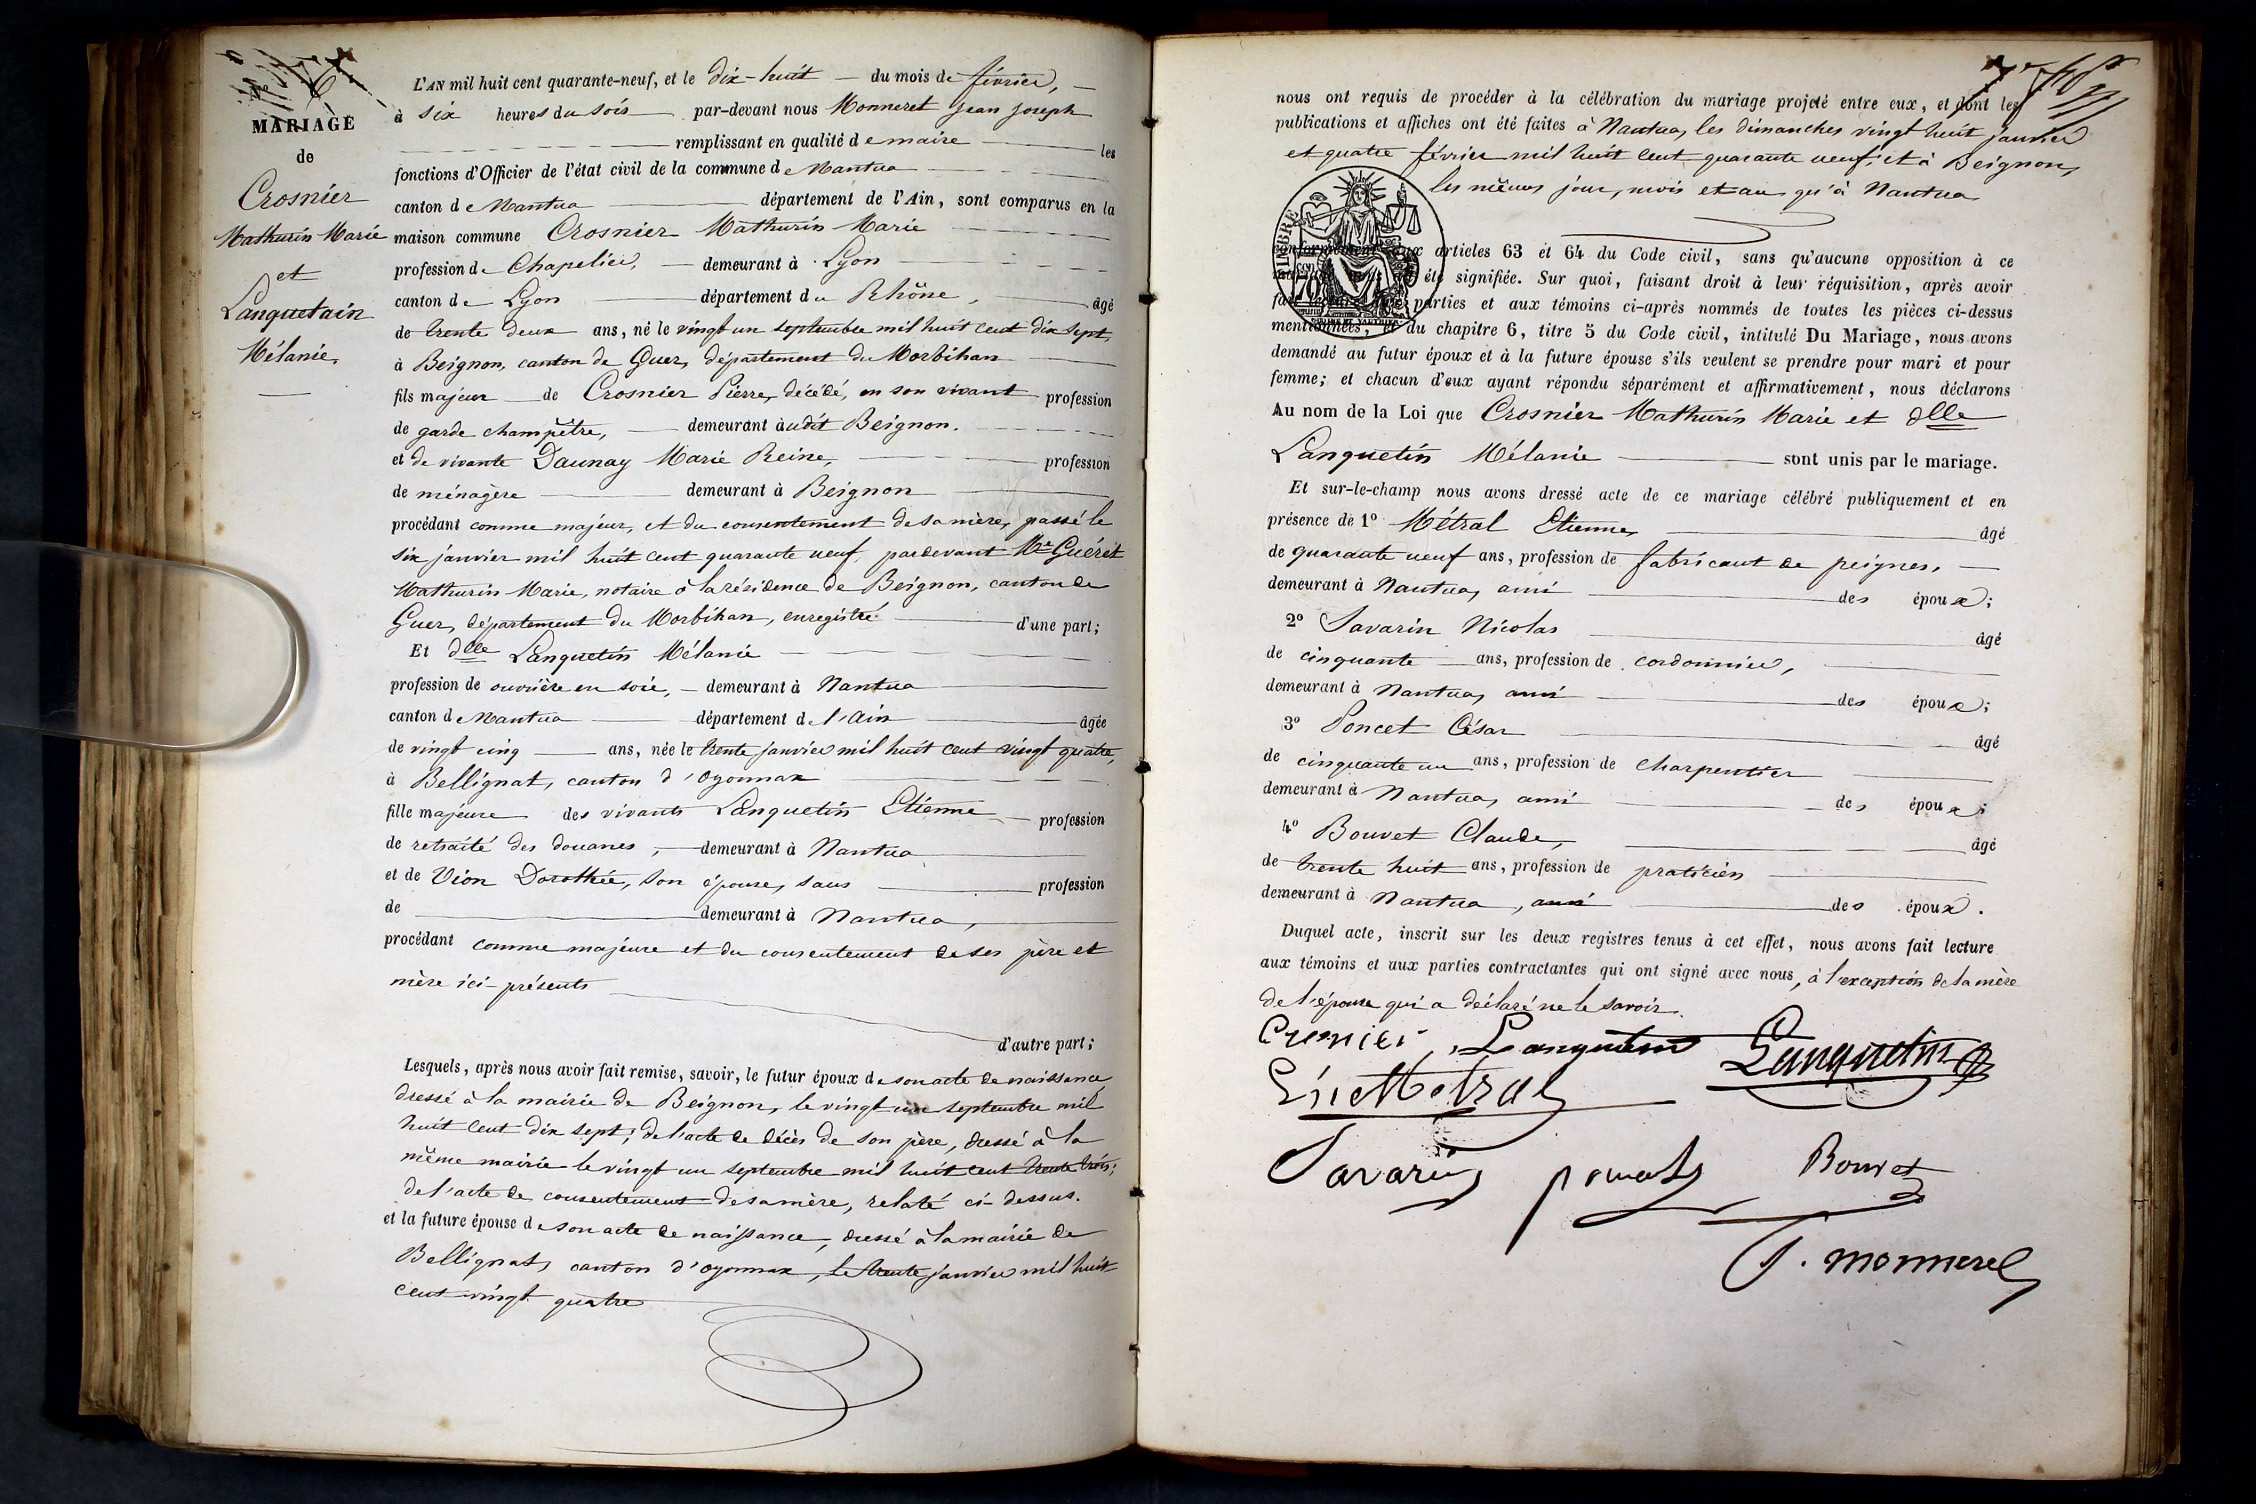 MARIAGE
de
Crosnier
Mathurin Marie
et
Lanquetain
Mélanie,
L'AN mil huit cent quarante-neuf, et le dix-huit du mois de février,
à six heures du soir par-devant nous Monneret Jean Joseph
remplissant en qualité de maire les
fonctions d'Officier de l'état civil de la commune de Nantua
canton de Nantua département de l'Ain, sont comparus en la
maison commune Crosnier Mathurin Marie
profession de Chapelier, demeurant à Lyon
canton de Lyon département du Rhône, âgé
de trente deux ans, né le vingt un septembre mil huit cent dix sept,
à Beignon, canton de Guer, département du Morbihan
fils majeur de Crosnier Pierre, décédé, en son vivant profession
de garde champêtre, demeurant audit Beignon.
et de vivante Daunay Marie Reine, profession
de ménagère demeurant à Beignon
procédant comme majeur, et du consentement de sa mère, passé le
six janvier mil huit cent quarante neuf, pardevant Mre Guéret
Mathurin Marie, notaire à la résidence de Beignon, canton de
Guer, département du Morbihan, enregistré d'une part;
Et dlle Lanquetin Mélanie
profession de ouvrière en soie, demeurant à Nantua
canton de Nantua département de l'Ain âgée
de vingt cinq ans, née le trente janvier mil huit cent vingt quatre,
à Bellignat, canton d'Oyonnax
fille majeure des vivants Lanquetin Etienne profession
de retraité des douanes, demeurant à Nantua
et de Vion Dorothée, son épouse, sans profession
de demeurant à Nantua,
procédant comme majeure et du consentement de ses père et
mère ici présents
d'autre part;
Lesquels, après nous avoir fait remise, savoir, le futur époux de son acte de naissance
dressé à la mairie de Beignon, le vingt un septembre mil
huit cent dix sept; de l'acte de décès de son père, dressé à la
même mairie le vingt un septembre mil huit cent trente trois;
de l'acte de consentement de sa mère, relaté ci-dessus.
et la future épouse de son acte de naissance, dressé à la mairie de
Bellignat, canton d'Oyonnax, le trente janvier mil huit
cent vingt quatre
nous ont requis de procéder à la célébration du mariage projeté entre eux, et dont les
publications et affiches ont été faites à Nantua, les dimanches vingt huit janvier
et quatre février mil huit cent quarante neuf, et à Beignon,
les mêmes jour, mois et an qu'à Nantua
TIMBRE
conformément aux articles 63 et 64 du Code civil, sans qu'aucune opposition à ce
été signifiée. Sur quoi, faisant droit à leur réquisition, après avoir
fait lecture aux parties et aux témoins ci-après nommés de toutes les pièces ci-dessus
mentionnées, et du chapitre 6, titre 5 du Code civil, intitulé Du Mariage, nous avons
demandé au futur époux et à la future épouse s'ils veulent se prendre pour mari et pour
femme; et chacun d'eux ayant répondu séparément et affirmativement, nous déclarons
Au nom de la Loi que Crosnier Mathurin Marie et dlle
Lanquetin Mélanie sont unis par le mariage.
Et sur-le-champ nous avons dressé acte de ce mariage célébré publiquement et en
présence de 1º Métral Etienne, âgé
de quarante neuf ans, profession de fabricant de peignes,
demeurant à Nantua, ami des époux;
2º Savarin Nicolas âgé
de cinquante ans, profession de cordonnier,
demeurant à Nantua, ami des époux;
3º Poncet César âgé
de cinquante un ans, profession de charpentier
demeurant à Nantua, ami des époux;
4º Bouvet Claude, âgé
de trente huit ans, profession de praticien
demeurant à Nantua, ami des époux.
Duquel acte, inscrit sur les deux registres tenus à cet effet, nous avons fait lecture
aux témoins et aux parties contractantes qui ont signé avec nous, à l'exception de la mère
de l'épouse qui a déclaré ne le savoir.
Cronier Lanquetin Lanquetin
Ene Metral
Savarin poncet Bouvet
J. monneret